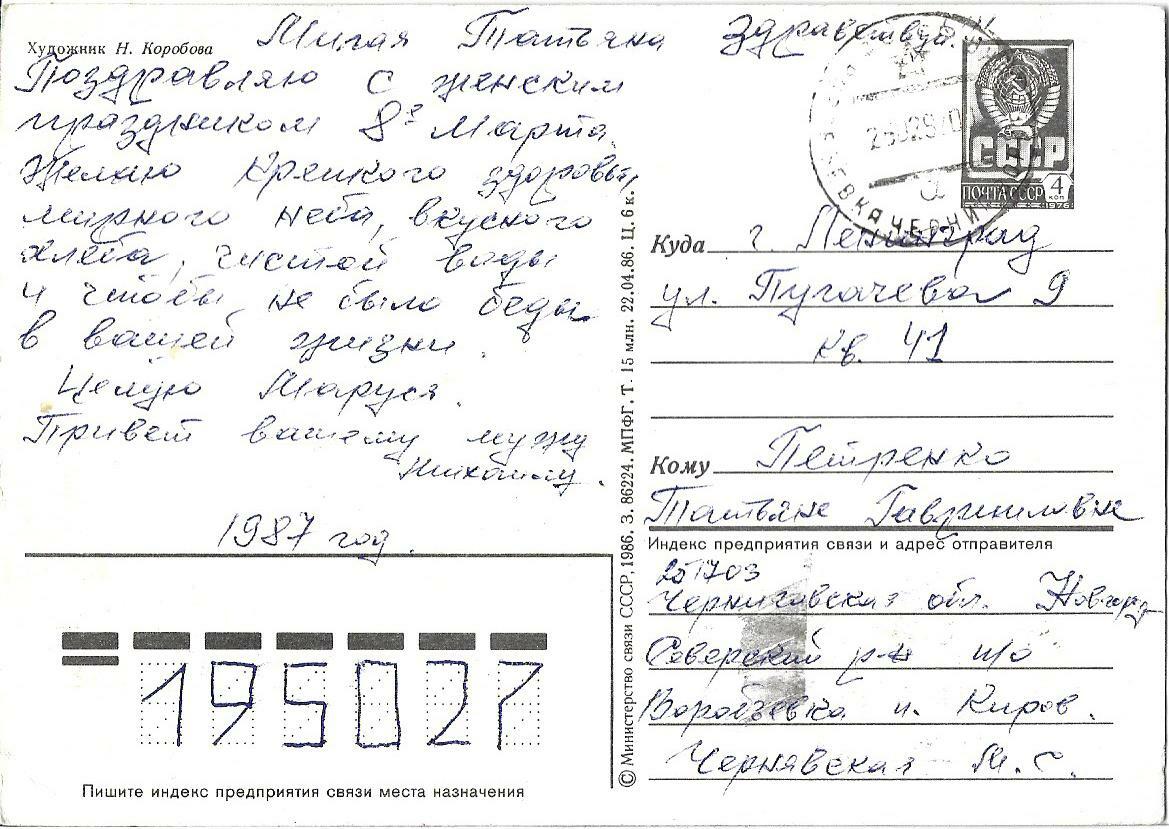 Художник Н. Коробова
Милая Татьяна Здравствуй.
Поздравляю с женским
праздником 8е Марта.
Желаю крепкого здоровья,
мирного неба, вкусного
хлеба, чистой воды
и чтобы не было беды
в вашей жизни.
Целую Маруся.
Привет вашему мужу
Михаилу.
1987 год.
195027
Пишите индекс предприятия связи места назначения
© Министерство связи СССР, 1986. З. 86224. МПФГ. Т. 15 млн. 22.04.86. Ц. 6 к.
СССР
ПОЧТА СССР 4 коп
1976
Куда г. Ленинград
ул. Пугачева 9
кв. 41
Кому Петренко
Татьяне Гавриловне
Индекс предприятия связи и адрес отправителя
251703
Черниговская обл. Новгород
Северский р-н п/о
п. Киров.
Чернявская М. С.